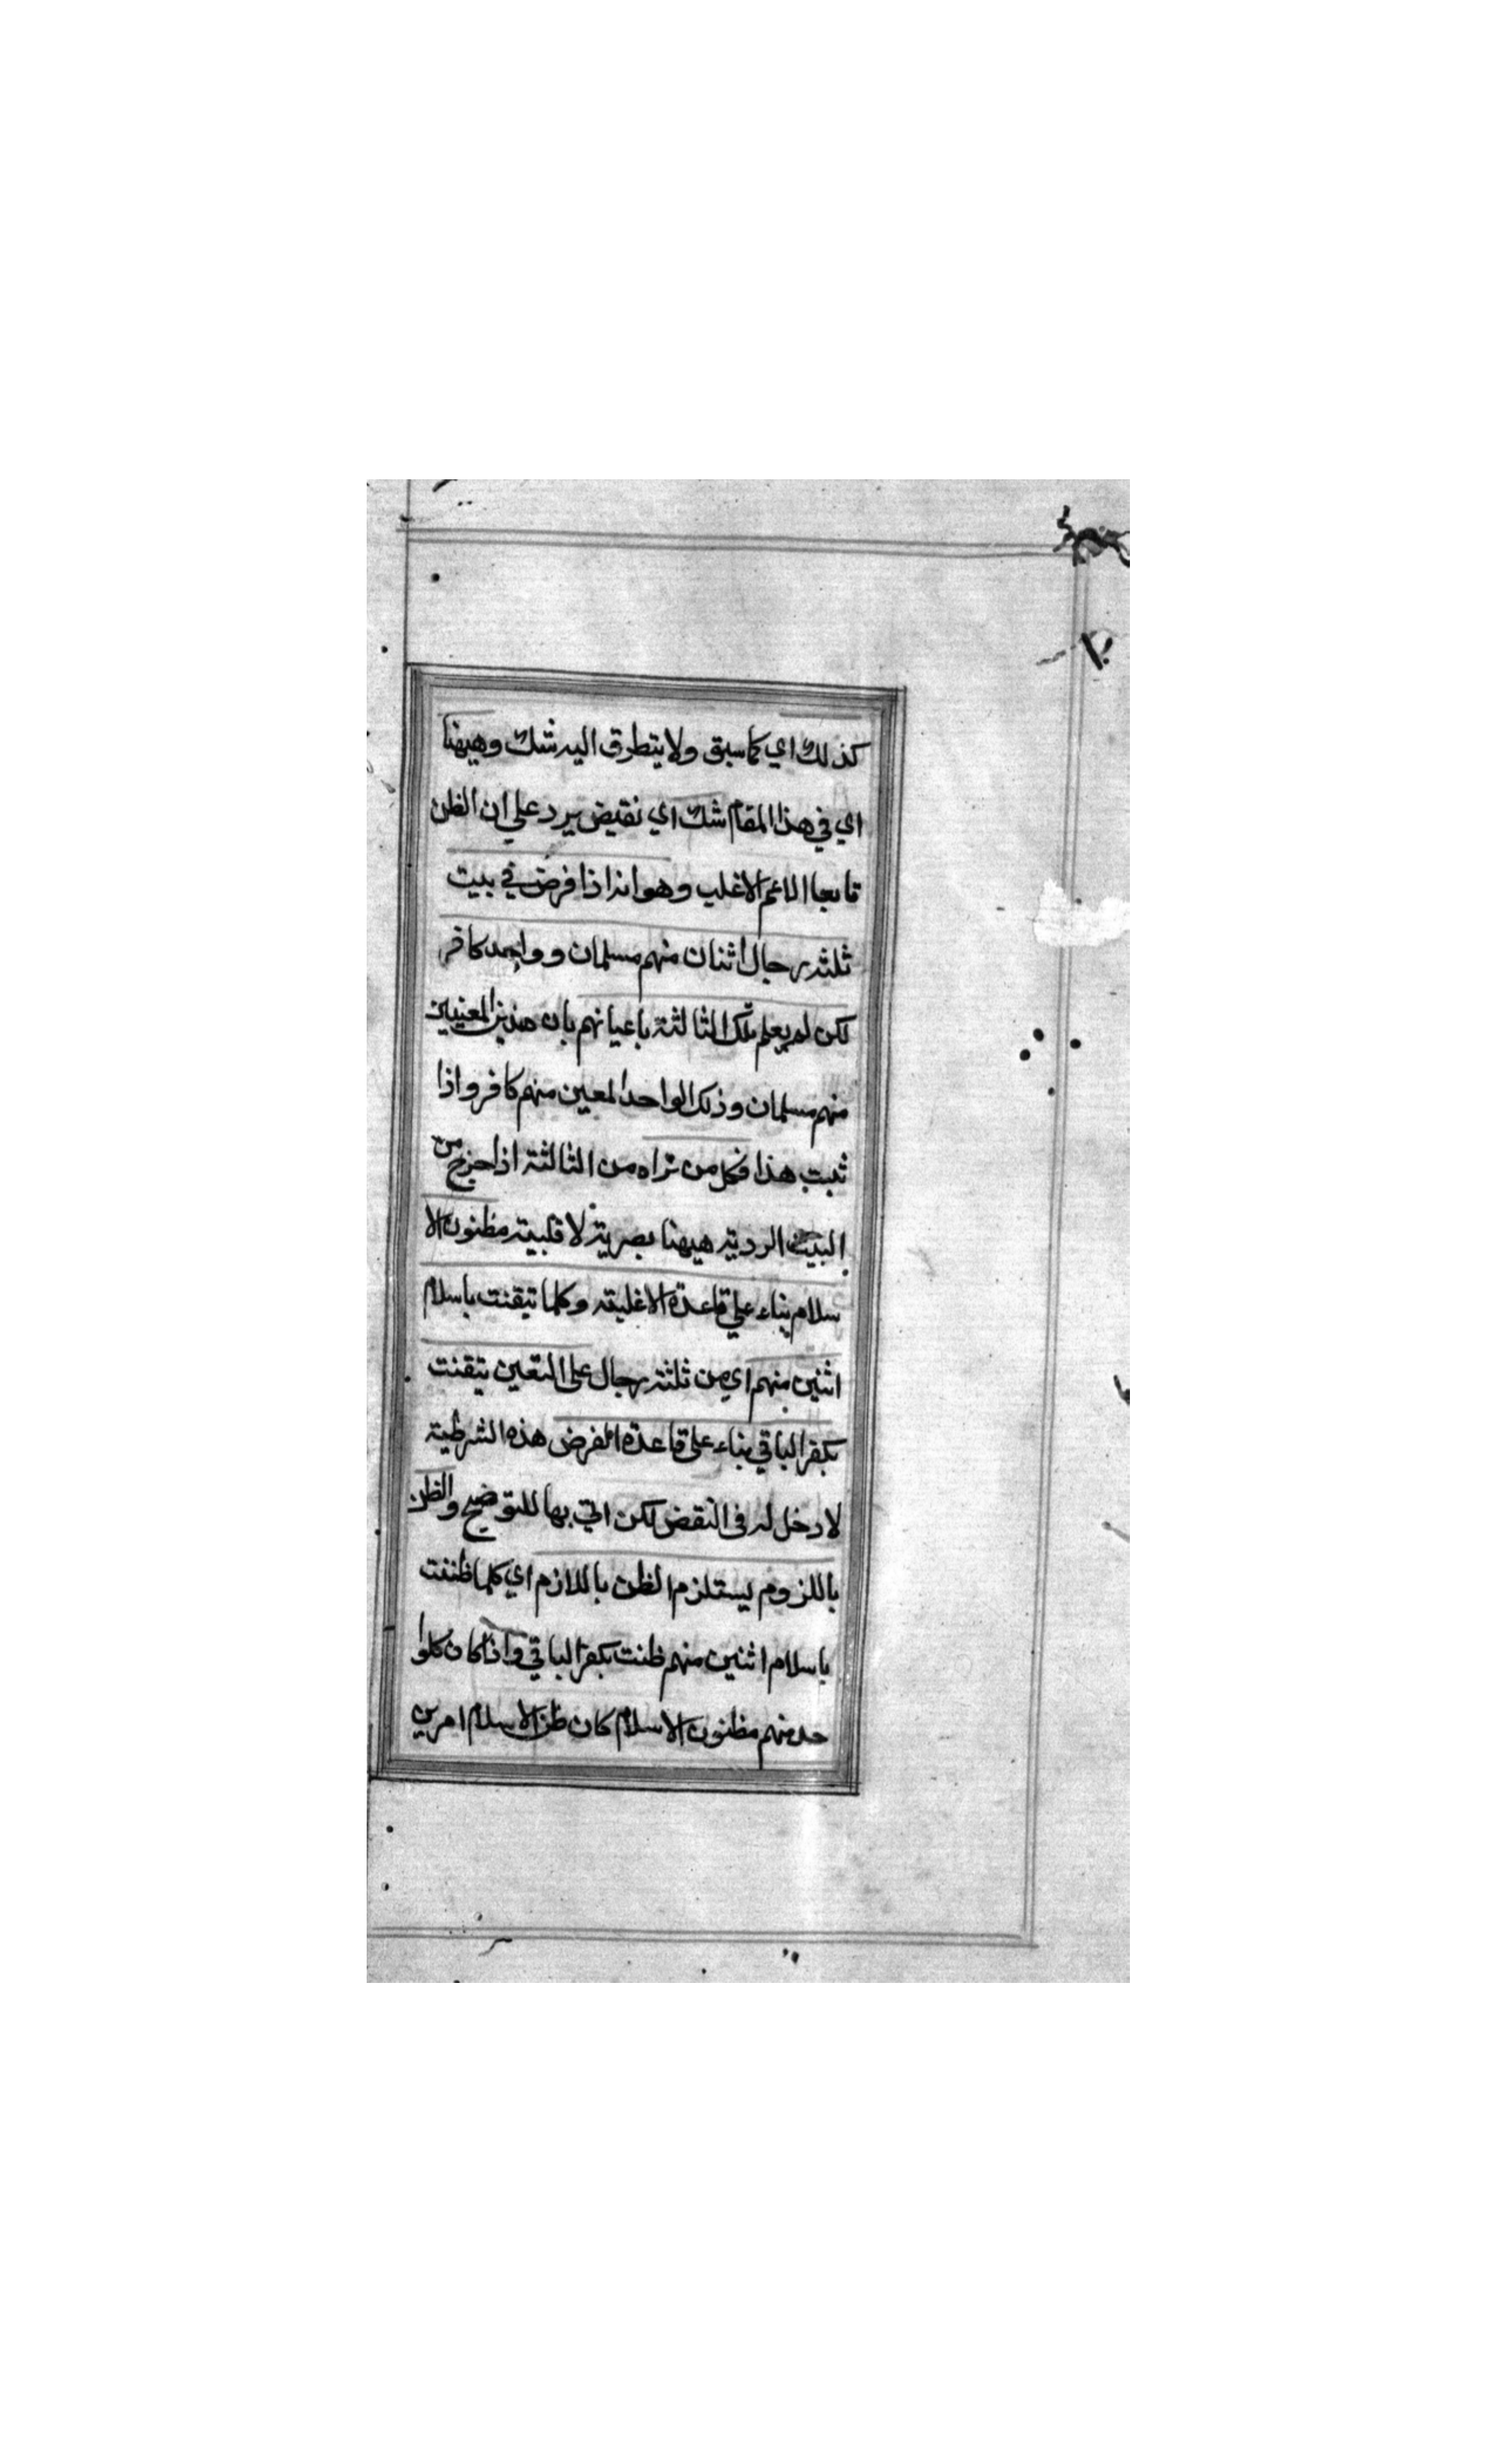 كذلك اي كما سبق ولا يتطرق اليه شك وهيهنا
اي في هذا المقام شك اي نقيض يرد علي ان الظن
الاعم الاغلب وهو انه اذا فرض في بيت
ثلثه رجال اثنان منهم مسلمان وواحد كافر
لكن لم يعلم تلك الثالثة باعيانهم بان هذين المعينين
منهم مسلمان وذلك الواحد المعين منهم كافر واذا
ثبت هذا فكل من تراه من الثالثة اذا خرج من
البيت الرديته هيهنا بصرية لا قلبية مظنون الا
سلام بناء علي قاعدة الاغلبية وكلما تيقنت باسلام
اثنين منهم اي من ثلثة رجال على التعين تيقنت
بكفر الباقي بناء على قاعدة الفرض هذه الشرطية
لا دخل له فى النقض لكن اتي بها للتوضيح والظن
باللزوم يستلزم الظن باللازم اي كلما ظننت
باسلام اثنين منهم ظنت بكفر الباقي واذا كان كلوا
حد منهم مظنون الاسلام كان ظن الاسلام امرين